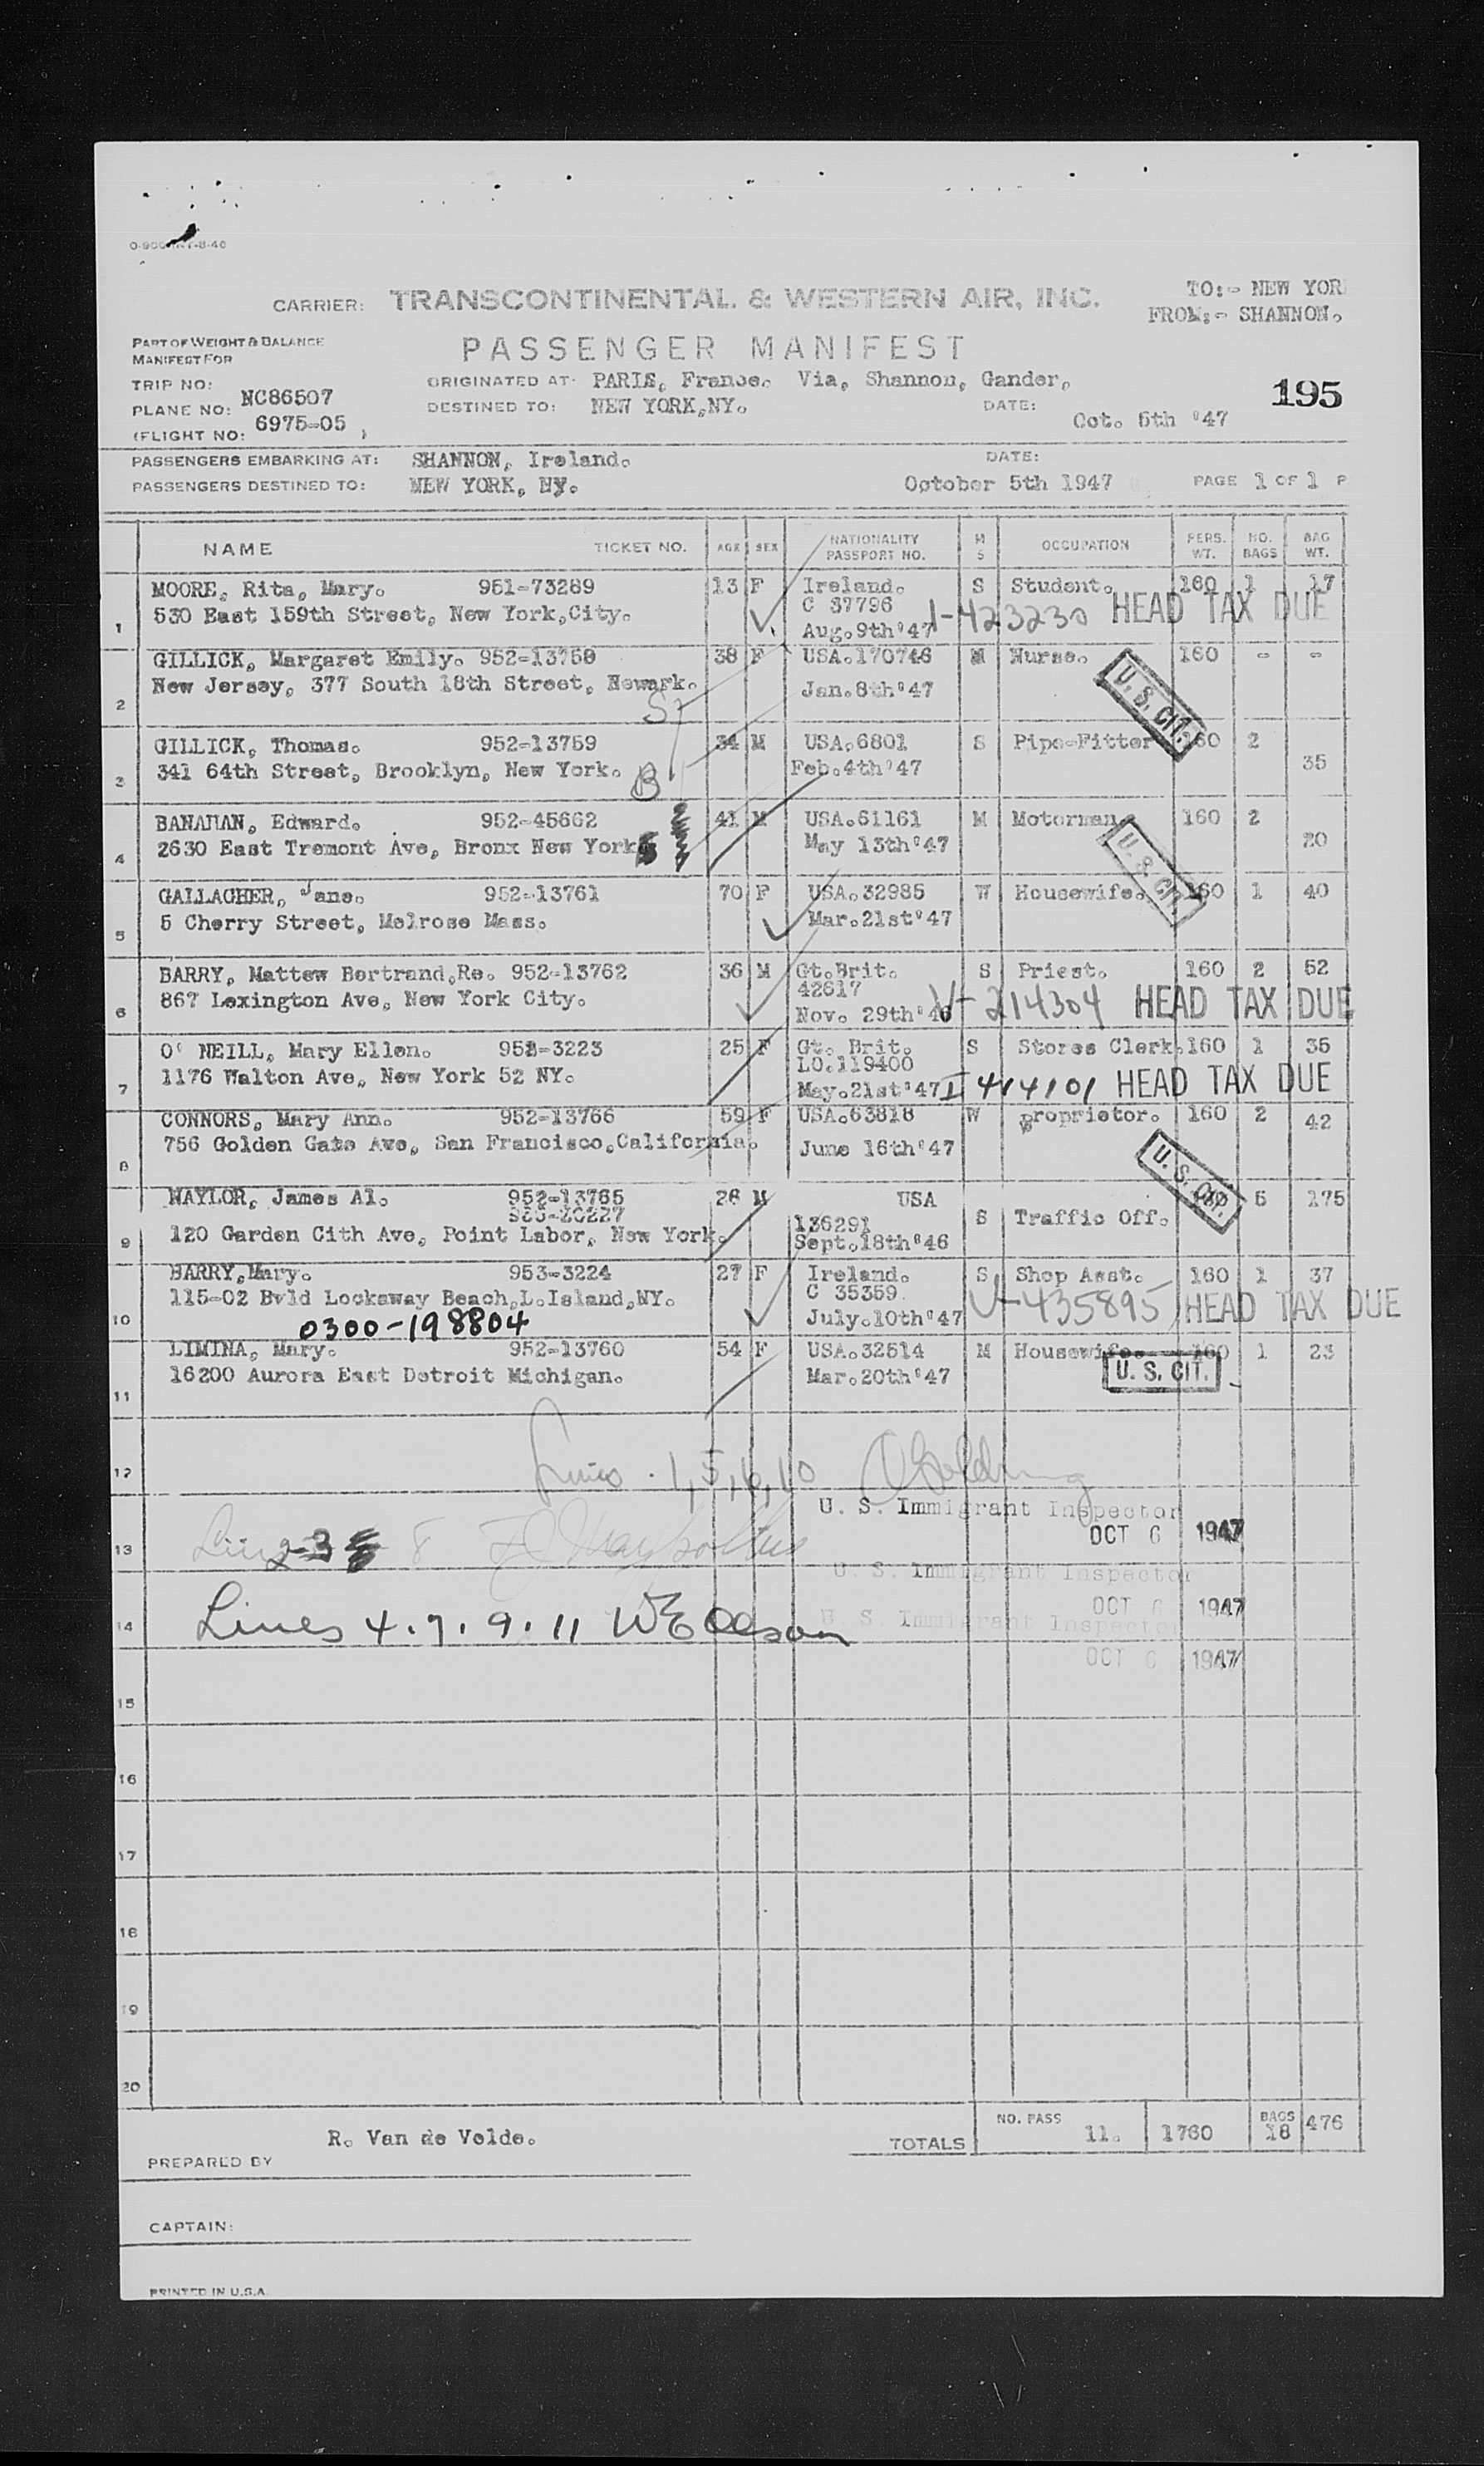 CARRIER: TRANSCONTINENTAL & WESTERN AIR, INC.
TO:- NEW YOR
FROM:- SHANNON.
PART OF WEIGHT & BALANCE
MANIFEST FOR
PASSENGER MANIFEST
TRIP NO:
ORIGINATED AT: PARIS, France. Via, Shannon, Gander,
195
PLANE NO: NC86507
DESTINED TO: NEW YORK,NY.
DATE: Oct. 5th '47
(FLIGHT NO: 6975-05 )
PASSENGERS EMBARKING AT: SHANNON, Ireland.
DATE:
PASSENGERS DESTINED TO: NEW YORK, Ny.
October 5th 1947
PAGE 1 OF 1 P
NAME TICKET NO. AGE SEX NATIONALITY PASSPORT NO. M S OCCUPATION PERS. WT. NO. BAGS BAG WT.
MOORE, Rita, Mary. 951-73289 13 F Ireland. S Student. 160 1 17
C 37796
1 530 East 159th Street, New York,City. Aug.9th'47 423230 HEAD TAX DUE
GILLICK, Margaret Emily. 952-13758 38 F USA.170746 M Nurse. 160 - -
New Jersey, 377 South 18th Street, Newark. Jan.8th'47 U. S. CIT.
2
GILLICK, Thomas. 952-13759 34 M USA.6801 S Pipe-Fitter 160 2 35
341 64th Street, Brooklyn, New York. B Feb.4th'47
3
BANAHAN, Edward. 952-45662 41 M USA.61161 M Motorman. 160 2 20
2630 East Tremont Ave, Bronx New York May 13th'47 U. S. CIT.
4
GALLAGHER, Jane. 952-13761 70 F USA.32985 W Housewife. 160 1 40
5 Cherry Street, Melrose Mass. Mar.21st'47
5
BARRY, Mattew Bertrand,Re. 952-13762 36 M Gt.Brit. S Priest. 160 2 52
867 Lexington Ave, New York City. 42617
6 Nov. 29th'46 V-214304 HEAD TAX DUE
O' NEILL, Mary Ellen. 952-3223 25 F Gt. Brit. S Stores Clerk. 160 1 35
1176 Walton Ave, New York 52 NY. LO.119400
7 May.21st'47 I 414101 HEAD TAX DUE
CONNORS, Mary Ann. 952-13766 59 F USA.63818 W Proprietor. 160 2 42
756 Golden Gate Ave, San Francisco.California. June 16th'47 U. S. CIT.
8
NAYLOR, James Al. 952-13765 26 M USA S Traffic Off. 5 175
136291
120 Garden Cith Ave, Point Labor, New York. Sept.18th'46
9
BARRY,Mary. 953-3224 27 F Ireland. S Shop Asst. 160 1 37
115-02 Bvld Lockaway Beach,L.Island,NY. C 35359
10 0300-198804 July.10th'47 V-435895 HEAD TAX DUE
LIMINA, Mary. 952-13760 54 F USA.32514 M Housewife. 160 1 23
16200 Aurora East Detroit Michigan. Mar.20th'47 U. S. CIT.
11
12 Lines . 1,5,6,10
U. S. Immigrant Inspector
OCT 6 1947
13 8
U. S. Immigrant Inspector
OCT 6 1947
14 Lines 4.7.9.11
U. S. Immigrant Inspector
OCT 6 1947
15
16
17
18
19
20
R. Van de Velde.
TOTALS NO. PASS 11. 1760 BAGS 18 476
PREPARED BY
CAPTAIN:
PRINTED IN U.S.A.